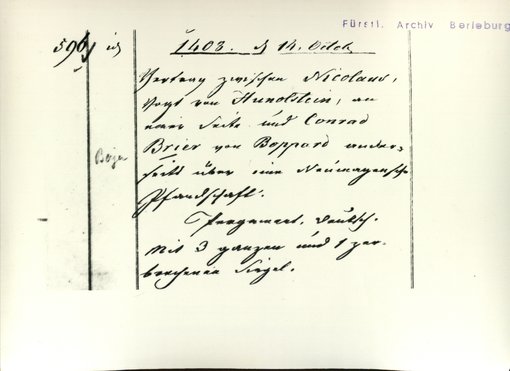 Fürstl. Archiv Berleburg
596
1403. d 14. Octob.
Vertrag zwischen Nicolaus,
Vogt von Hunolstein, an
einer Seite und Conrad
Brier von Boppard ander-
seits über eine Neumagensche
Pfandschaft.
Pergament. Deutsch.
Mit 3 ganzen und 1 zer-
brochenen Siegel.